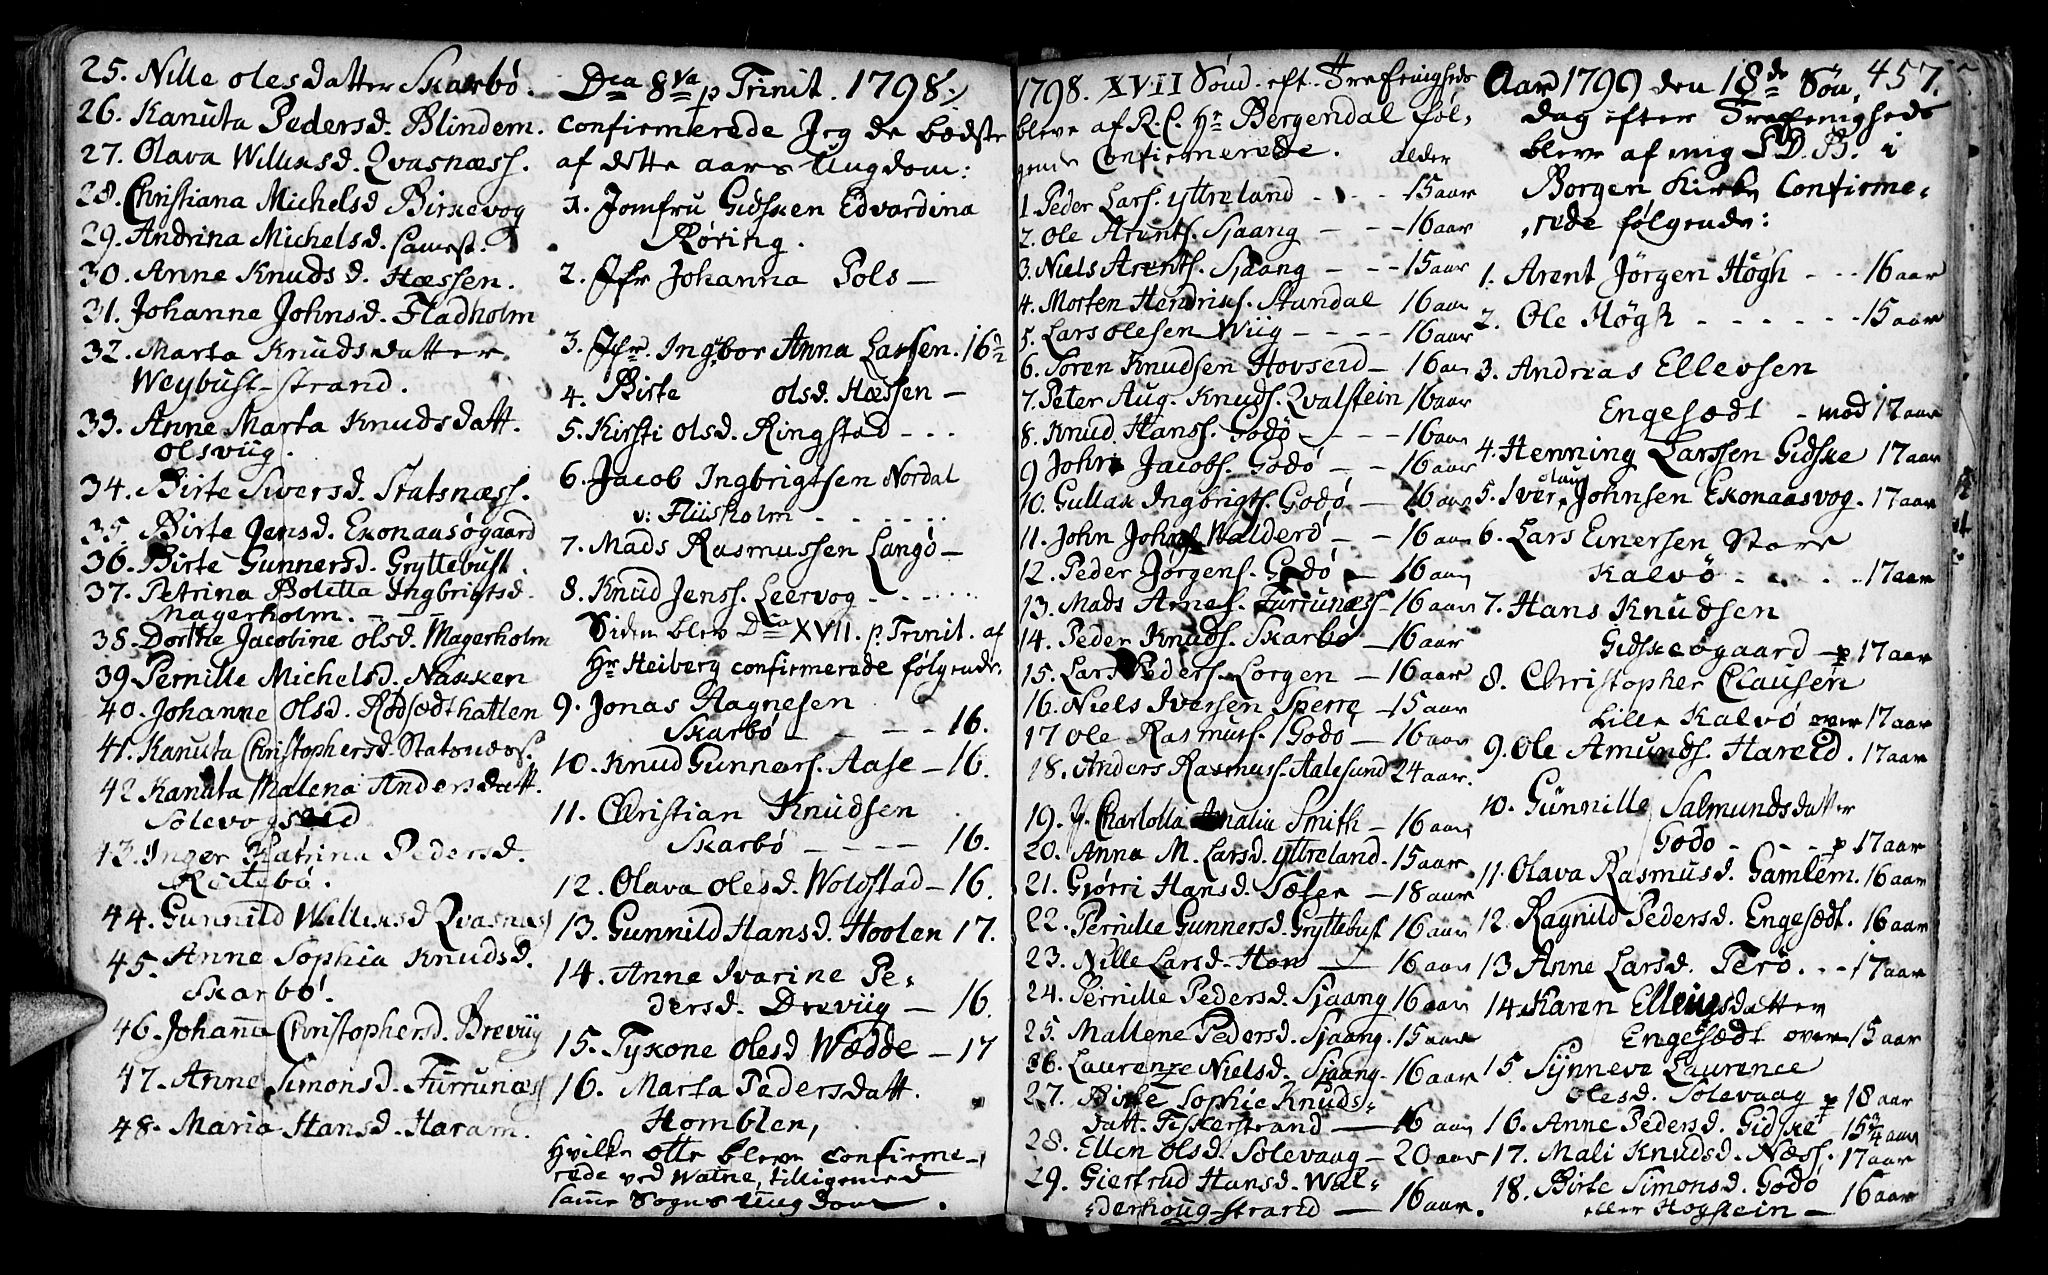 25. Nille olesdatter Skarbö.
26. Kanuta Pedersd. Blindem.
27. Olava Willuksd. Qvasnæss.
28. Christiana Michelsd Birkevog
29. Andrina Michelsd. samest.
30. Anne Knudsd. Hæssen.
31. Johanne Johnsd. Fladholm
32. Marta Knudsdatter
Weybust-strand.
33. Anne Marta Knudsdatt.
Olsviig.
34. Birte Siversd. Statsnæss.
35. Birte Jensd. Exonaasøgaard
36. Birte Gunnersd. Gryttebust.
37. Petrina Boletta Ingbrigtsd.
Magerholm. - - -
38. Dorthe Jacobine olsd. Magerholm
39. Pernille Michelsd. Nakken
40. Johanne Olsd. Rødsædthatlen
41. Kanuta Christophersd. Statsnæss.
42 Kanuta Malena Andersdatt.
Solevogseid
43. Inger Katrina Pedersd.
Röttebö.
44. Gunnild Willuksd Qvasnæss
45. Anne Sophia Knudsd.
Skarbö.
46. Johana Christophersd. Breviig
47. Anne Simonsd. Furrunæss
48. Maria Hansd. Haram.
Dca 8va p Trinit. 1798.
confirmerede Jeg de bædste
af dette aars Ungdom:
1. Jomfru Gidsken Edvardina
Røring.
2. Jfr Johanna Pols —
3. Jfr. Ingbor Anna Lassen. 16½
4. Birte olsd. Hæssen —
5. Kirsti olsd. Ringstad - - -
6. Jacob Ingbrigtsen Nordal
v: Fliisholm - - - - - -
7. Mads Rasmussen Langö —
8. Knud Jenss. Leervog - - - - -
Siden blev Dca XVII. p. Trinit. af
Hr Heiberg confirmerede følgende.
9. Jonas Hagnesen
Skarbö - - - - 16.
10. Knud Gunners. Aase — 16.
11. Christian Knudsen
Skarbö - - - - 16.
12. Olava olesd. Woldstad — 16.
13. Gunnild Hansd. Hoolen 17.
14. Anne Ivarine Pe-
dersd. Dreviig — 16.
15. Tyxone olesd Wædde — 17
16. Marta Pedersdatt.
Homblen,
hvilke otte bleve confirme-
rede ved Watne, tilligemed
same Sogns Ungdom.
1798. XVII Sönd. eft. Trefenigheds
bleve af R. C. Hr Bergendal föl-
gende Confirmerede. alder
1. Peder Larss. ytreland - - - 15 aar
2. Ole Arents. Sjaang - - - 16 aar
3. Niels Arents. Sjaang - - - 15 aar
4. Morten Hendriks. Standal 16 aar
5. Lars olesen Wiig - - - - 16 aar
6. Søren Knudsen Hovseid — 16 aar
7. Peter Aug. Knuds. Qvalstein 16 aar
8. Knud Hanss. Godö - - - - 16 aar
9 John Jacobs. Godö - - 16 aar
10. Gullak Ingbrigts. Godö. - 16 aar
11. John Johns Walderö - - 16 aar
12. Peder Jörgens. Godö — 16 aar
13. Mads Arnes. Furrunæss - 16 aar
14. Peder Knuds. Skarbö - 16 aar
15. Lars Peders. Lorgen — 16 aar
16. Niels Iversen Sperre — 15 aar
17 Ole Rasmuss. Godö — 16 aar
18. Anders Rasmuss. Aalesund 24 aar.
19. J. Charlotta Amalia Smith — 16 aar
20. Anna M. Larsd. ytreland. 15 aar
21. Gjørri Hansd. Sæter — 18 aar
22. Pernille Gunnersd. Gryttebust 16 aar
23. Nille Larsd. Hom — 16 aar
24. Pernille Pedersd. Sjaang 16 aar
25. Mallene Pedersd. Sjaang. 15 aar
26. Laurenze Nielsd. Sjaang. 16 aar
27. Birte Sophie Knuds-
datt. Fiskerstrand — 16 aar
28. Ellen olsd. Solevaag — 20 aar
29. Giertrud Hansd. Wal-
derhoug-strand — 16 aar.
457.
Aar 1799 den 18de Søn,
dag efter Trefenigheds
bleve af mig S. D. B. i
Borgen Kirke Confirme-
rede følgende:
1. Arent Jörgen Högh - - - 16 aar
2. Ole Högh - - - - - - 15 aar
3. Andreas Ellevsen
Engesædt - mod 17 aar
4. Henning Larssen Gidske 17 aar
olaus
5. Iver Johnsen Exonaasvog. 17 aar
6. Lars Einersen Store
Kalvö - - - - - 17 aar
7. Hans Knudsen
Gidskeøgaard — p 17 aar
8. Christopher Clausen
Lille Kalvö over 17 aar
9. Ole Amunds. Hareid. 17 aar
10. Günnille Salmundsdatter
Godö - - - p 17 aar
11. Olava Rasmusd. Gamlem. 16 aar
12. Ragnild Pedersd. Engesædt. 16 aar
13 Anne Larsd. Terö. - - - 17 aar
14. Karen Ellevsdatter
Engesædt over 15 aar
15. Synneve Laurence
olesd. Solevaag p 18 aar
16. Anne Pedersd. Gidske 15¾ aar
17. Mali Knudsd. Næss. 17 aar
18. Birte Simonsd. Godö
eller Hogstein — 16 aar